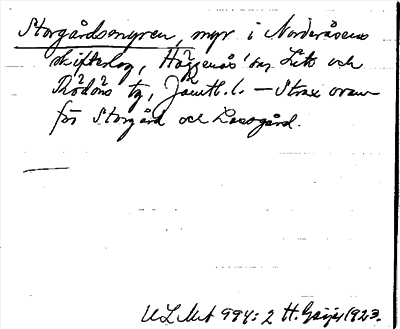 Storgårdsmyren, myr i Norderåsens
skifteslag, Häggenås' sn, Lits och
Rödöns tg, Jämtl. l. — Strax ovan
för Storgård och Lassgård.
ULMA 994:2 H. Geijer 1923.